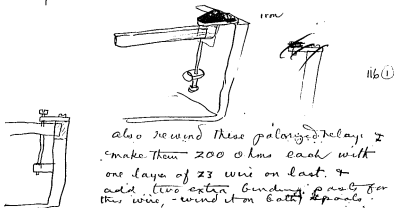 Iron
116 (1)
also rewind these polarized relays &
make them 200 ohms each with
one layer of 23 wire on last. &
add two extra binding posts for
this wire, - wind it on both spools.